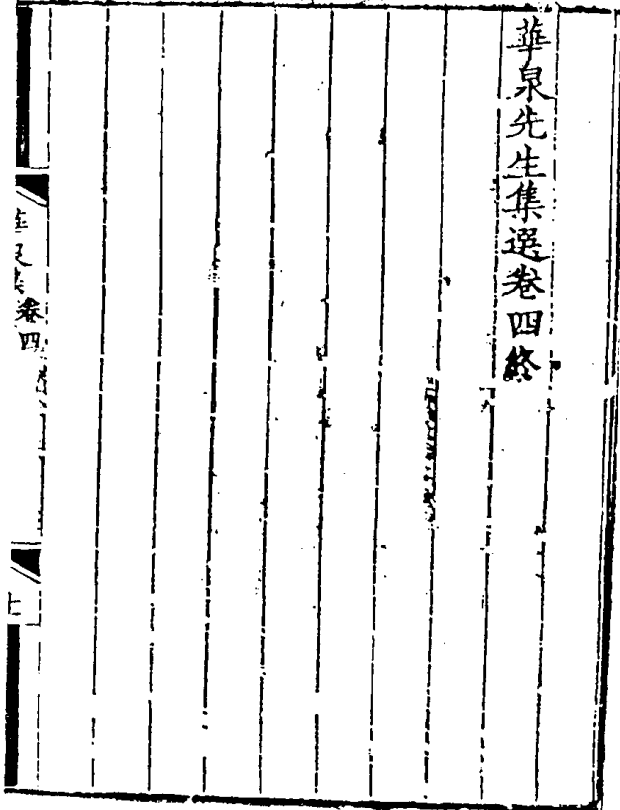 華泉先生集選卷四終
華泉集卷四